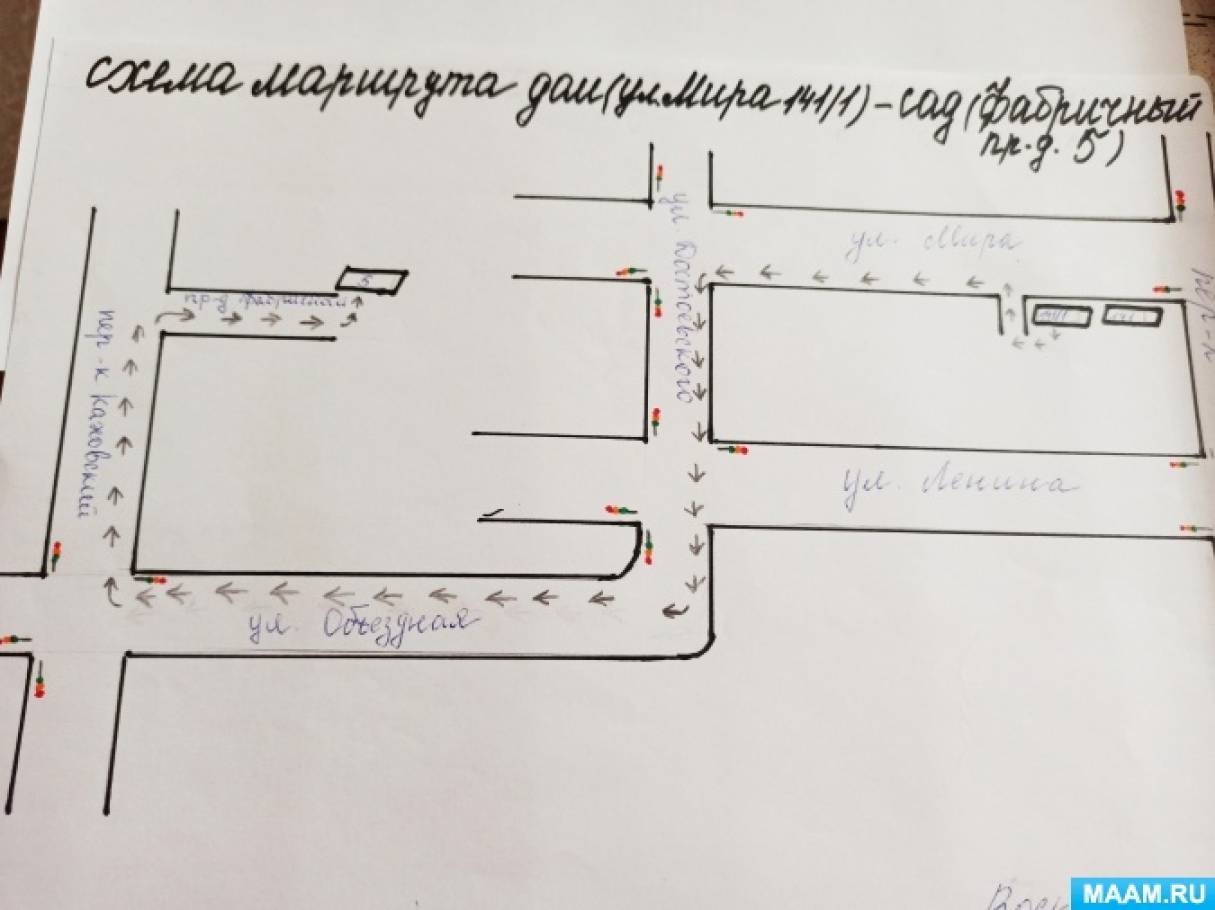 схема маршрута дом (ул. Мира 141/1) - сад (Фабричный
пр-д. 5)
ул. Мира
ул. Достоевского
5
пр-д Фабричный
141/1
141
пер-к Каховский
ул. Ленина
ул. Объездная
пер-к
MAAM.RU